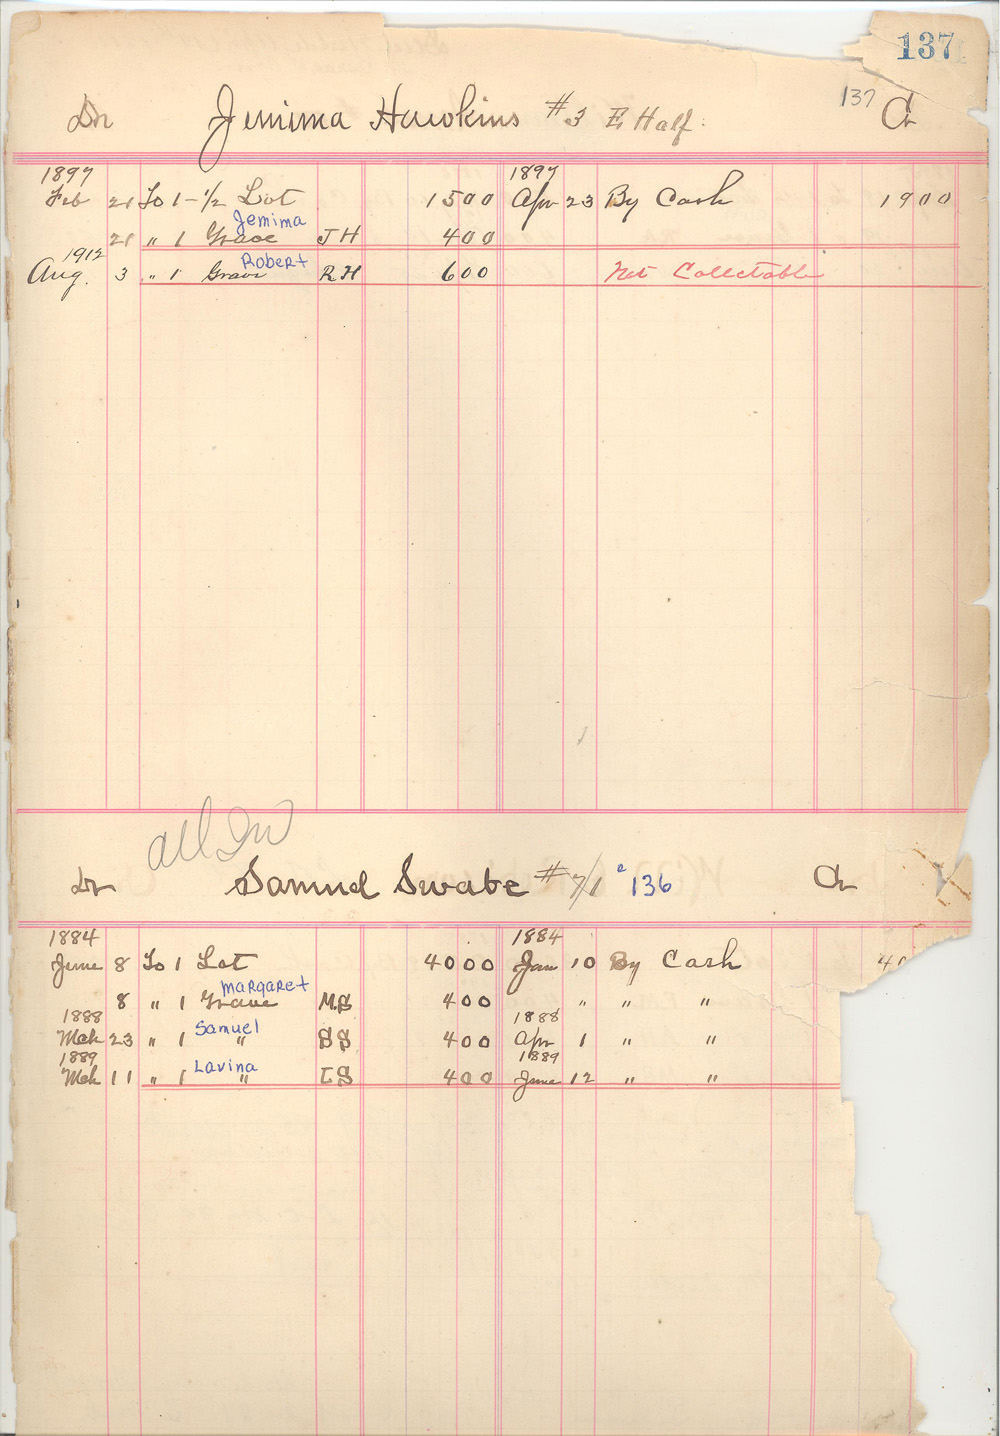 137
137
Dr Jemima Hawkins #3 E Half. Cr
1897 1897
Feb 21 To 1-1/2 Lot 1500 Apr 23 By Cash 1900
Jemima
21 " 1 Grave J H 400
1912 Robert
Aug. 3 " 1 Grave R H 600 Not Collectable
all In
Dr Samuel Swabe #7/1 136 Cr
1884 1884
June 8 To 1 Lot 4000 Jan 10 By Cash 40
Margaret
8 " 1 Grave M.S 400 " " "
1888 Samuel 1888
Mch 23 " 1 " S S 400 Apr 1 " "
1889 Lavina 1889
Mch 11 " 1 " L S 400 June 12 " "